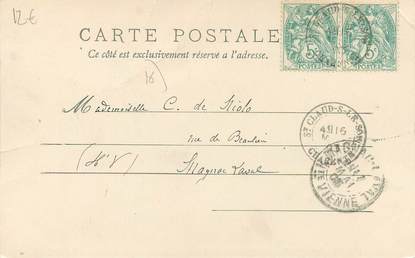 12€
CARTE POSTALE
Ce côté est exclusivement réservé à l'adresse.
5 5
POSTES POSTES
Mademoiselle C. de
rue de Beaulieu
(Hte V)
Magnac Laval
ST CLAUD-S-LE-SON
VIENNE